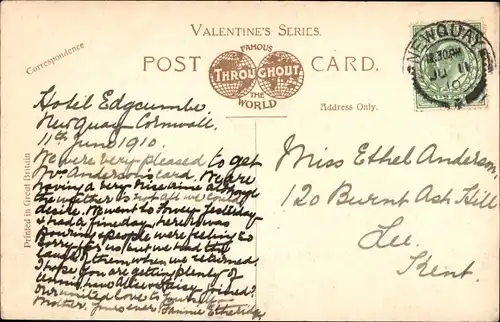 VALENTINE'S SERIES.
FAMOUS
POST CARD.
THROUGHOUT
THE
WORLD
Correspondence
Address Only.
Printed in Great Britain
NEWQUAY
JU 11
10
Hotel Edgcumbe
Newquay Cornwall.
11th June 1910.
We were very pleased to get
Mrs Anderson's card. We are
having a very nice time although
the weather is not all we could
desire. We went to Fowey yesterday
& had a fine day, here it was
pouring & people were feeling so
sorry for us, but we had the
laugh of them when we returned
I hope you are getting plenty of
tennis, have Olive & Daisy joined?
Our united love to yourself &
Mother, Yours ever, Fannie Etheridge
Miss Ethel Anderson,
120 Burnt Ash Hill
Lee.
Kent.